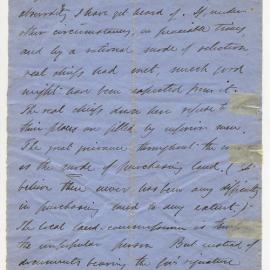 absurdity I have yet heard of. If, under
other circumstances, in peaceable times
and by a rational mode of selection
real chiefs had met, much good
might have been expected from it.
The real chiefs down here refuse to
their places are filled by inferior men.
The great grievance throughout the
is the mode of purchasing land. (I
believe there never has been any difficulty
in purchasing land to any extent.)
The local land commissioner is
the unpopular person. But instead of
documents bearing the Gov's signature